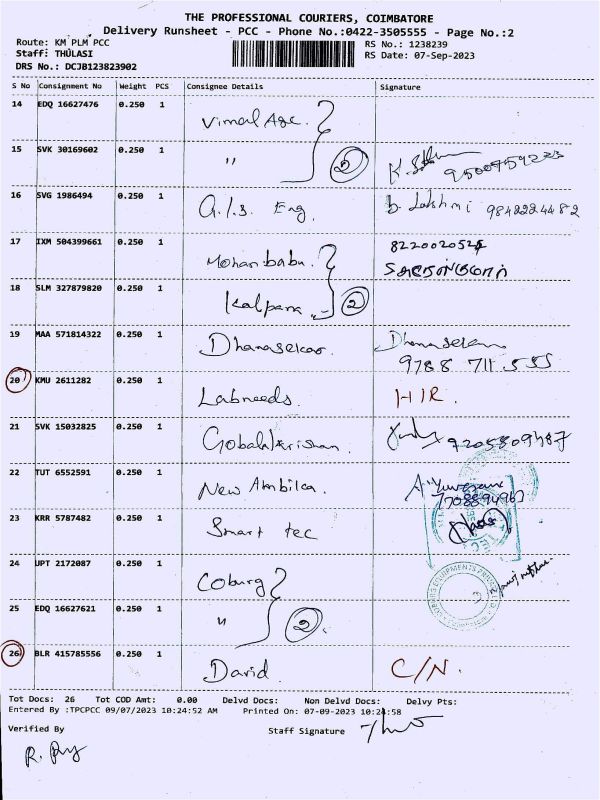 THE PROFESSIONAL COURIERS, COIMBATORE
Delivery Runsheet - PCC - Phone No.:0422-3505555 - Page No.:2
Route: KM PLM PCC
RS No.: 1238239
Staff: THULASI
RS Date: 07-Sep-2023
DRS No.: DCJB123823902
S No Consignment No Weight PCS Consignee Details Signature
14 EDQ 16627476 0.250 1 Vimal Age
15 SVK 30169602 0.250 1 " 2 9500759223
16 SVG 1986494 0.250 1 a.l.s. Eng. b. Lakshmi 9842224482
17 IXM 504399661 0.250 1 Mohan babu 8220020524
18 SLM 327879820 0.250 1 Kalpana 2
19 MAA 571814322 0.250 1 Dhanasekar Dhanasekaran
9788 711 555
20 KMU 2611282 0.250 1 Labneeds. HIR.
21 SVK 15032825 0.250 1 Gobalakrishan 7205809487
22 TUT 6552591 0.250 1 New Ambika.
7708894963
23 KRR 5787482 0.250 1 Smart tec
24 UPT 2172087 0.250 1 Coburg
25 EDQ 16627621 0.250 1 " 2
26 BLR 415785556 0.250 1 David C/N.
Tot Docs: 26 Tot COD Amt: 0.00 Delvd Docs: Non Delvd Docs: Delvy Pts:
Entered By :TPCPCC 09/07/2023 10:24:52 AM Printed On: 07-09-2023 10:24:58
Verified By Staff Signature